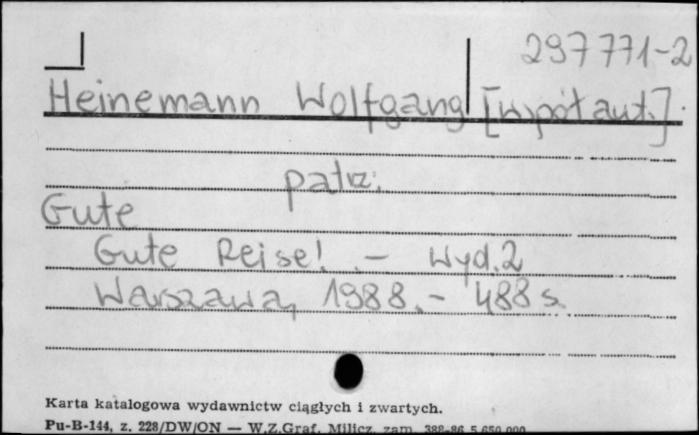 297771-2
Heinemann Wolfgang [współaut.]
patrz:
Gute
Gute Reise! - Wyd. 2
Warszawa, 1988. - 488 s.
Karta katalogowa wydawnictw ciągłych i zwartych.
Pu-B-144, z. 228/DW/ON — W.Z.Graf. Milicz, zam. 388-86 5.650.000